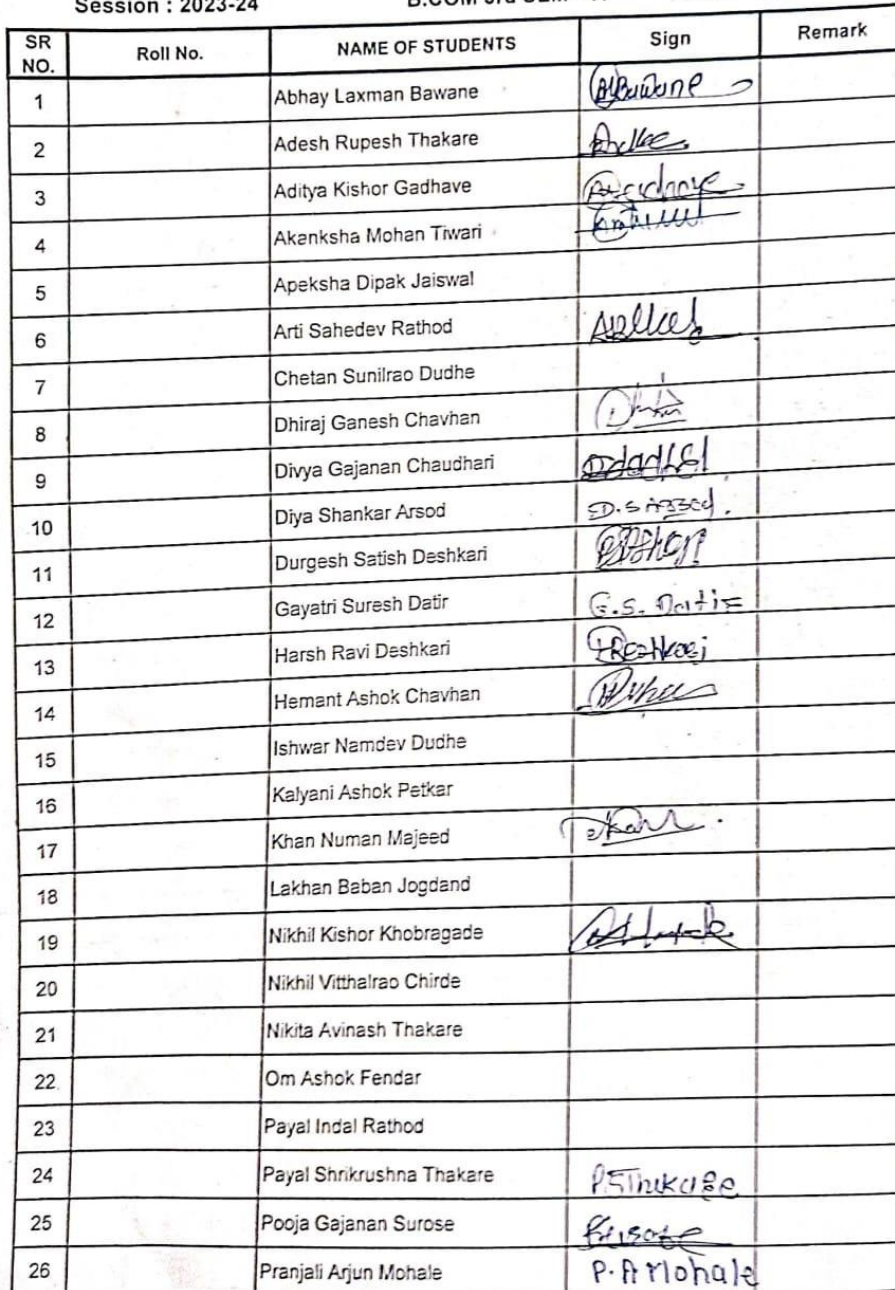 Session : 2023-24
SR NO. Roll No. NAME OF STUDENTS Sign Remark
1 Abhay Laxman Bawane
2 Adesh Rupesh Thakare
3 Aditya Kishor Gadhave
4 Akanksha Mohan Tiwari
5 Apeksha Dipak Jaiswal
6 Arti Sahedev Rathod
7 Chetan Sunilrao Dudhe
8 Dhiraj Ganesh Chavhan
9 Divya Gajanan Chaudhari
10 Diya Shankar Arsod
11 Durgesh Satish Deshkari
12 Gayatri Suresh Datir G.S. Datir
13 Harsh Ravi Deshkari
14 Hemant Ashok Chavhan
15 Ishwar Namdev Dudhe
16 Kalyani Ashok Petkar
17 Khan Numan Majeed
18 Lakhan Baban Jogdand
19 Nikhil Kishor Khobragade
20 Nikhil Vitthalrao Chirde
21 Nikita Avinash Thakare
22 Om Ashok Fendar
23 Payal Indal Rathod
24 Payal Shrikrushna Thakare
25 Pooja Gajanan Surose
26 Pranjali Arjun Mohale P.A Mohale